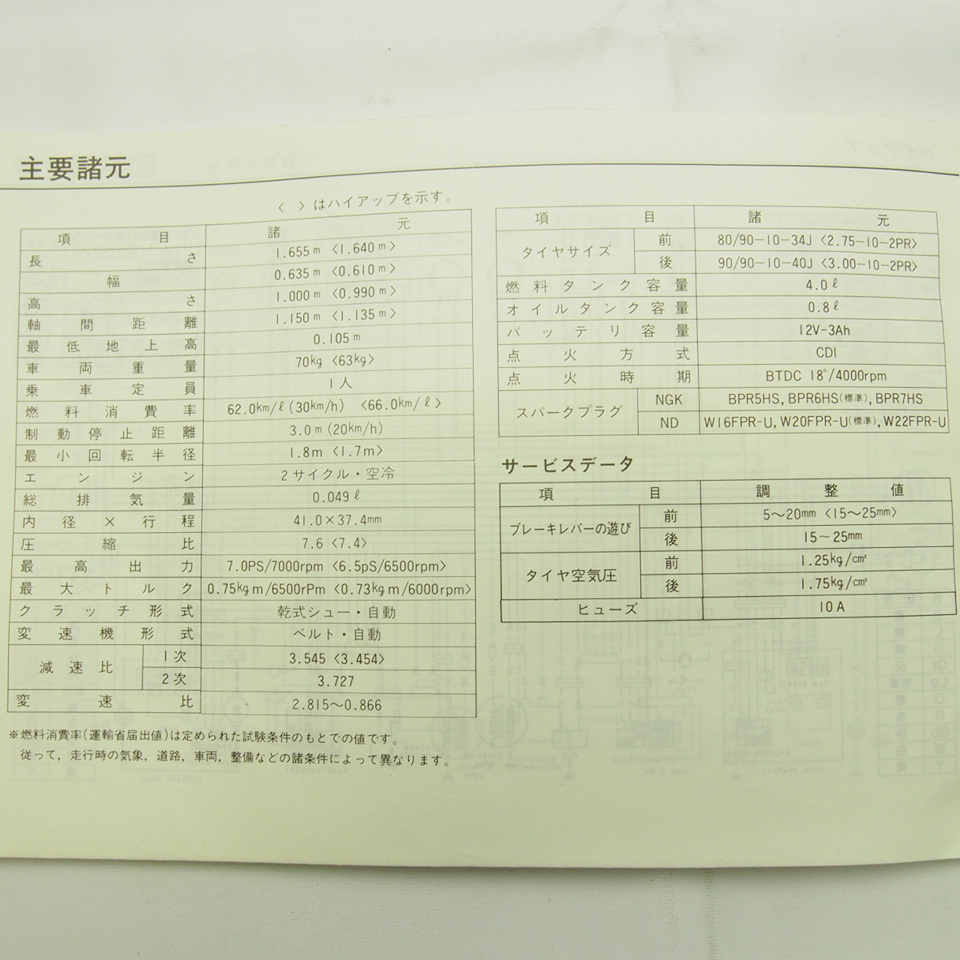 主要諸元
〈 〉はハイアップを示す。
項目 諸元
長さ 1.655m〈1.640m〉
幅 0.635m〈0.610m〉
高さ 1.000m〈0.990m〉
軸間距離 1.150m〈1.135m〉
最低地上高 0.105m
車両重量 70kg〈63kg〉
乗車定員 1人
燃料消費率 62.0km/ℓ(30km/h)〈66.0km/ℓ〉
制動停止距離 3.0m(20km/h)
最小回転半径 1.8m〈1.7m〉
エンジン 2サイクル・空冷
総排気量 0.049ℓ
内径×行程 41.0×37.4mm
圧縮比 7.6〈7.4〉
最高出力 7.0PS/7000rpm〈6.5pS/6500rpm〉
最大トルク 0.75kgm/6500rPm〈0.73kgm/6000rpm〉
クラッチ形式 乾式シュー・自動
変速機形式 ベルト・自動
減速比 1次 3.545〈3.454〉
2次 3.727
変速比 2.815～0.866
※燃料消費率(運輸省届出値)は定められた試験条件のもとでの値です。
従って，走行時の気象，道路，車両，整備などの諸条件によって異なります。
項目 諸元
タイヤサイズ 前 80/90-10-34J〈2.75-10-2PR〉
後 90/90-10-40J〈3.00-10-2PR〉
燃料タンク容量 4.0ℓ
オイルタンク容量 0.8ℓ
バッテリ容量 12V-3Ah
点火方式 CDI
点火時期 BTDC 18°/4000rpm
スパークプラグ NGK BPR5HS, BPR6HS(標準), BPR7HS
ND W16FPR-U, W20FPR-U(標準), W22FPR-U
サービスデータ
項目 調整値
ブレーキレバーの遊び 前 5～20mm〈15～25mm〉
後 15～25mm
タイヤ空気圧 前 1.25kg/cm²
後 1.75kg/cm²
ヒューズ 10A